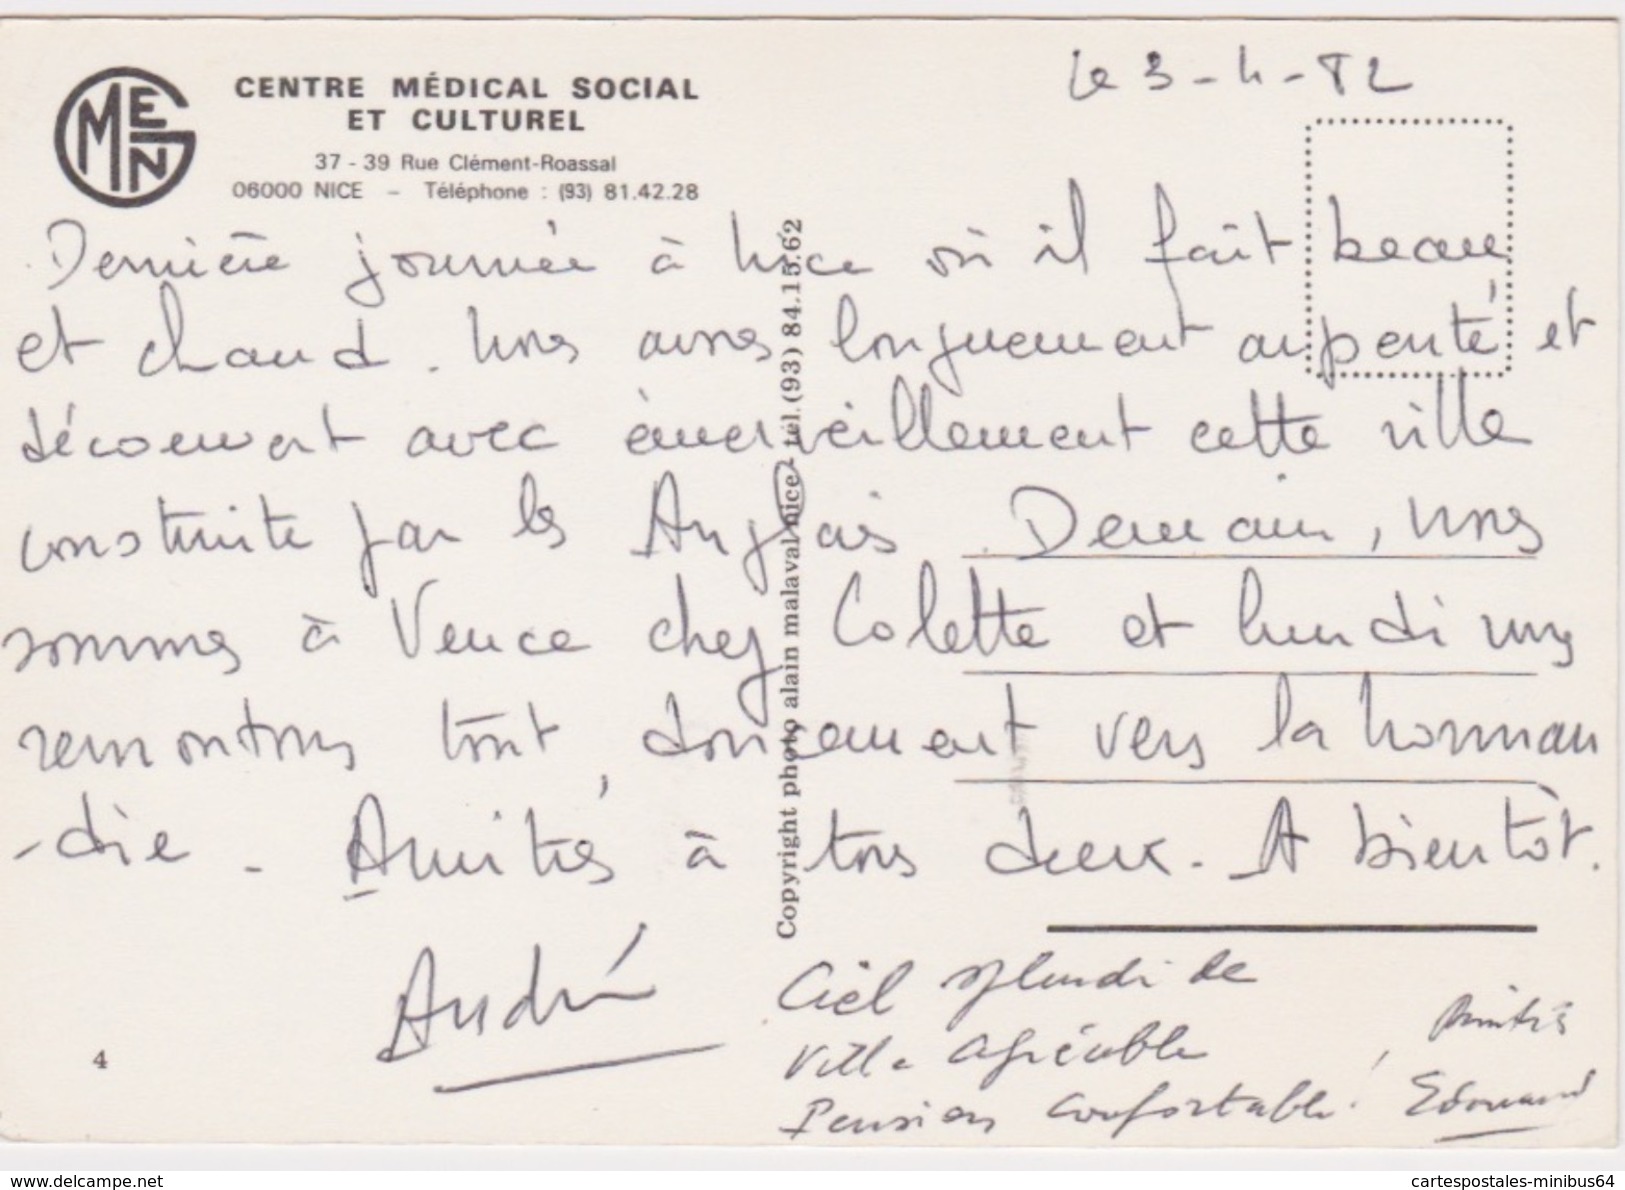 MGEN
CENTRE MÉDICAL SOCIAL
ET CULTUREL
37 - 39 Rue Clément-Roassal
06000 NICE – Téléphone : (93) 81.42.28
Le 3-4-82
Dernière journée à Nice où il fait beau
et chaud. Nous avons longuement arpenté et
découvert avec émerveillement cette ville
construite par les Anglais. Demain, nous
sommes à Vence chez Colette et lundi nous
remontons tout doucement vers la Norman
-die. Amitiés à tous deux. A bientôt.
André
Copyright photo alain malaval nice - tél. (93) 84.15.62
Ciel splendide
Ville agréable
Pension confortable !
Amitiés
Edouard
4
www.delcampe.net
cartespostales-minibus64